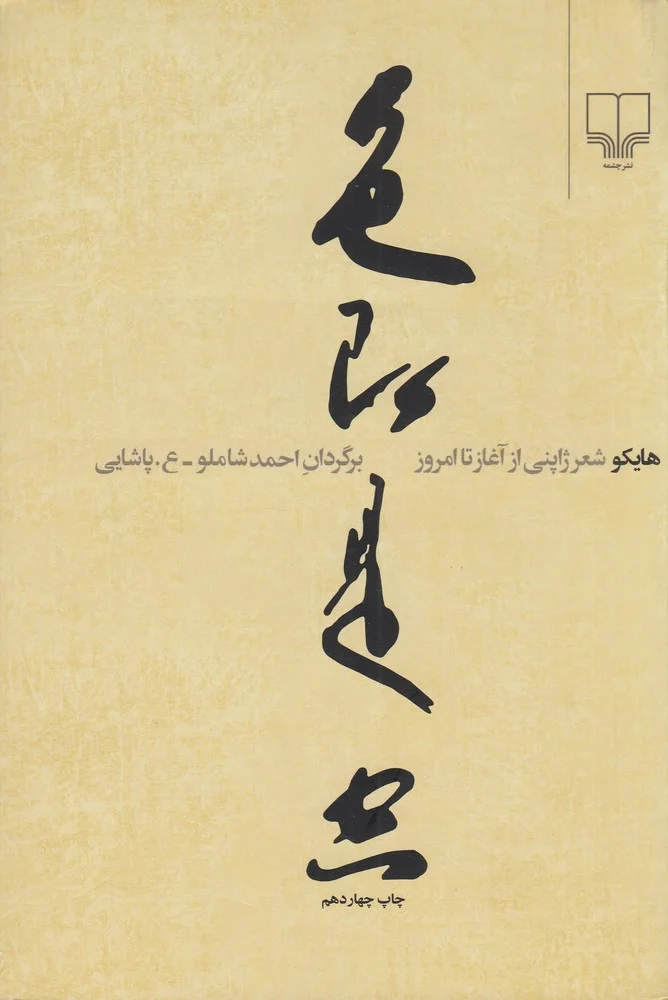 نشر چشمه
色
即
是
空
هایکو شعر ژاپنی از آغاز تا امروز برگردانِ احمد شاملو - ع. پاشایی
چاپ چهاردهم